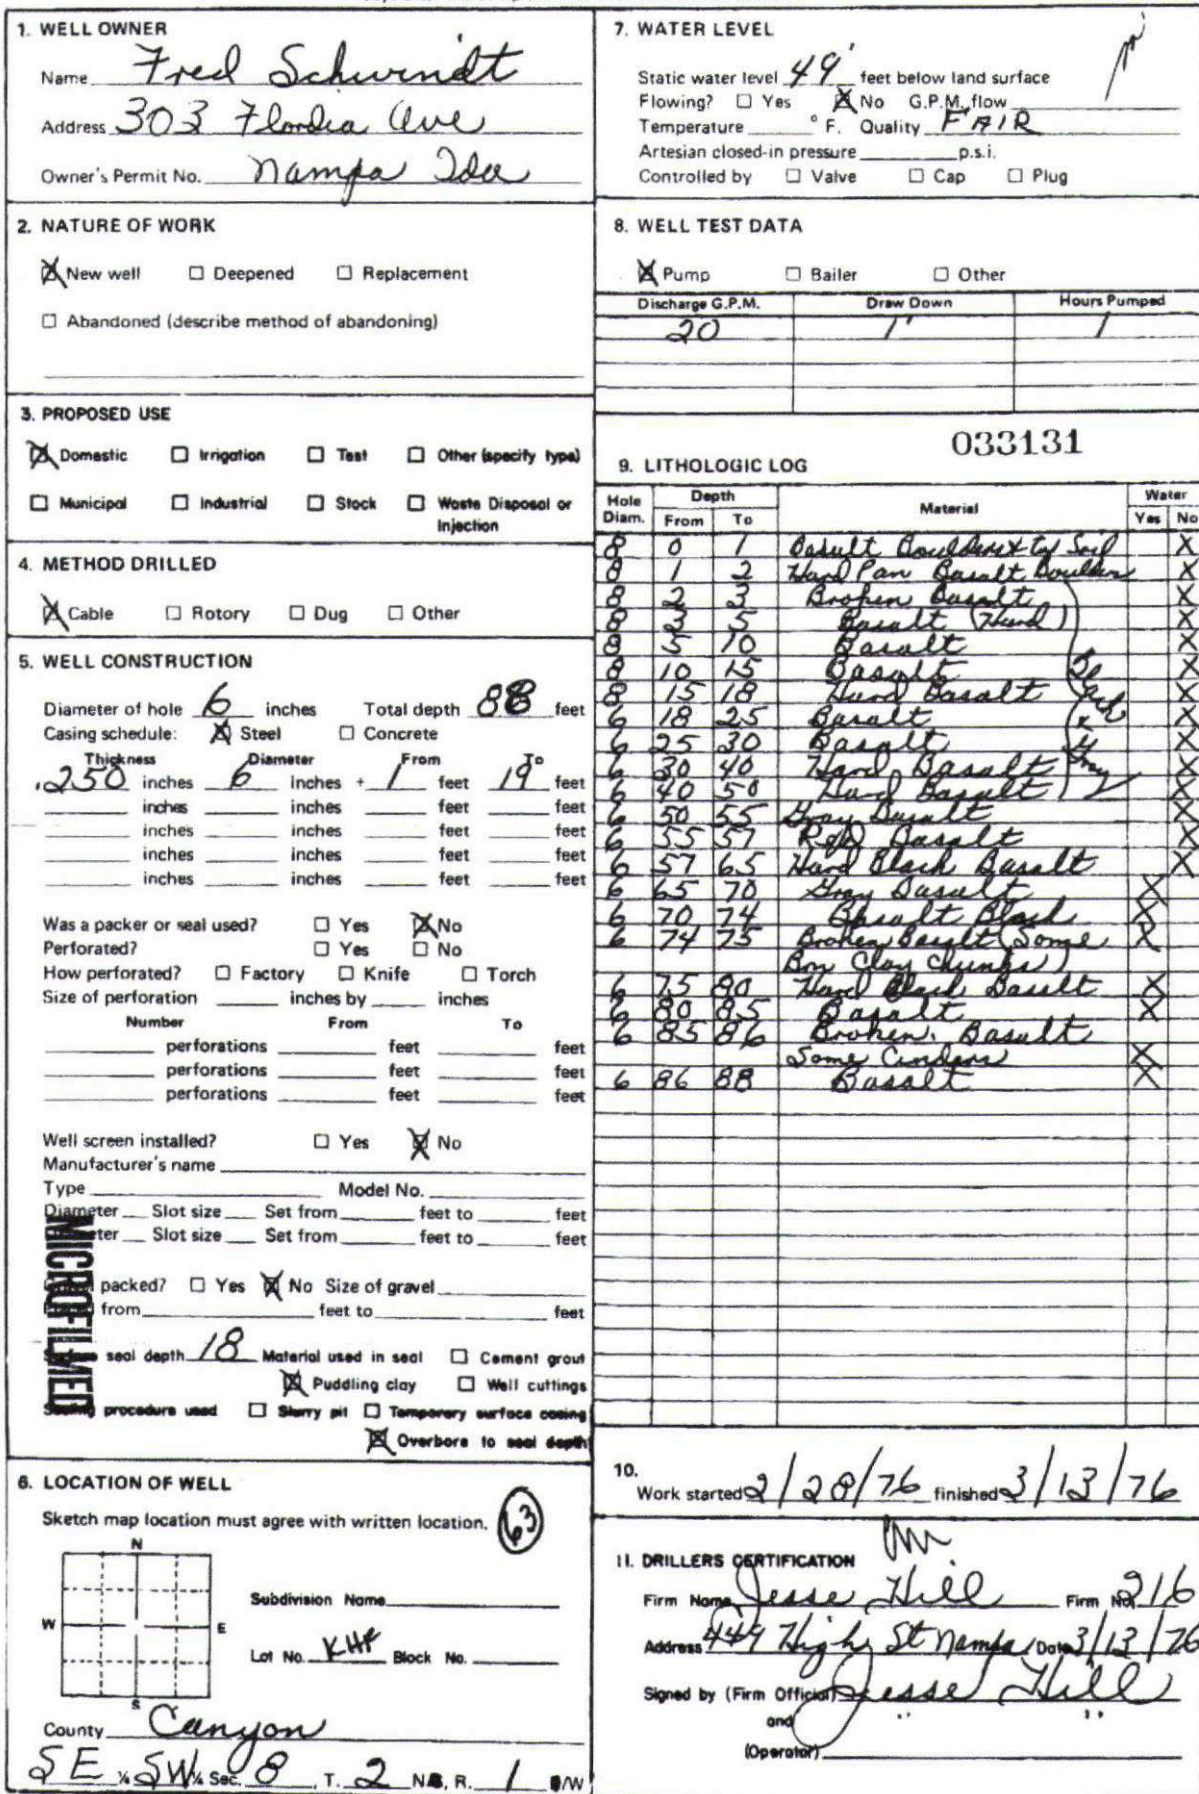 1. WELL OWNER
Name Fred Schwindt
Address 303 Flordia Ave
Owner's Permit No. Nampa Ida
2. NATURE OF WORK
New well Deepened Replacement
Abandoned (describe method of abandoning)
3. PROPOSED USE
Domestic Irrigation Test Other (specify type)
Municipal Industrial Stock Waste Disposal or
Injection
4. METHOD DRILLED
Cable Rotory Dug Other
5. WELL CONSTRUCTION
Diameter of hole 6 inches Total depth 88 feet
Casing schedule: Steel Concrete
Thickness Diameter From To
.250 inches 6 inches + 1 feet 19 feet
inches inches feet feet
inches inches feet feet
inches inches feet feet
inches inches feet feet
Was a packer or seal used? Yes No
Perforated? Yes No
How perforated? Factory Knife Torch
Size of perforation inches by inches
Number From To
perforations feet feet
perforations feet feet
perforations feet feet
Well screen installed? Yes No
Manufacturer's name
Type Model No.
Diameter Slot size Set from feet to feet
Slot size Set from feet to feet
MICROFILMED
packed? Yes No Size of gravel
from feet to feet
seal depth 18 Material used in seal Cement grout
Puddling clay Well cuttings
procedure used Slurry pit Temporary surface casing
Overbore to seal depth
6. LOCATION OF WELL
63
Sketch map location must agree with written location.
N
W E
S
Subdivision Name
Lot No. Block No.
County Canyon
SE ¼ SW ¼ Sec. 8, T. 2 N/S, R. 1 E/W
7. WATER LEVEL
Static water level 49' feet below land surface
Flowing? Yes No G.P.M. flow
Temperature ° F. Quality FAIR
Artesian closed-in pressure p.s.i.
Controlled by Valve Cap Plug
8. WELL TEST DATA
Pump Bailer Other
Discharge G.P.M. Draw Down Hours Pumped
20 1' 1
033131
9. LITHOLOGIC LOG
Hole Diam. Depth Material Water
From To Yes No
8 0 1 Basult Boulders & top Soil X
8 1 2 Hard Pan Basalt Boulders X
8 2 3 Broken Basalt X
8 3 5 Basalt (Hard) X
8 5 10 Basalt X
8 10 15 Basalt X
8 15 18 Hard Basalt X
6 18 25 Basalt X
6 25 30 Basalt X
6 30 40 Hard Basalt X
6 40 50 Hard Basalt X
6 50 55 Gray Basalt X
6 55 57 Red Basalt X
6 57 65 Hard Black Basalt X
6 65 70 Gray Basult X
6 70 74 Basalt Black X
6 74 75 Broken Basalt (Some X
Brn Clay Chunks)
6 75 80 Hard Black Basalt X
6 80 85 Basalt X
6 85 86 Broken Basalt
Some Cinders X
6 86 88 Basalt X
10.
Work started 2/28/76 finished 3/13/76
11. DRILLERS CERTIFICATION
Firm Name Jesse Hill Firm No. 216
Address 449 High St Nampa Date 3/13/76
Signed by (Firm Official) Jesse Hill
and
(Operator)